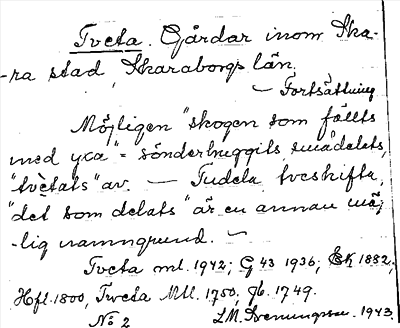 Tveta. Gårdar inom Ska-
-ra stad, Skaraborgs län.
— Fortsättning
Möjligen "skogen som fällts
med yxa" = sönderhuggits smådelats,
"tvetats" av. — Tudela tveskifta,
"det som delats" är en annan möj
-lig namngrund. —
Tveta ml. 1942; G 43 1936; EK 1882;
Hfl. 1800, Tweta Mtl. 1750, Jb. 1749.
No 2 L.M. Svenungsson. 1943